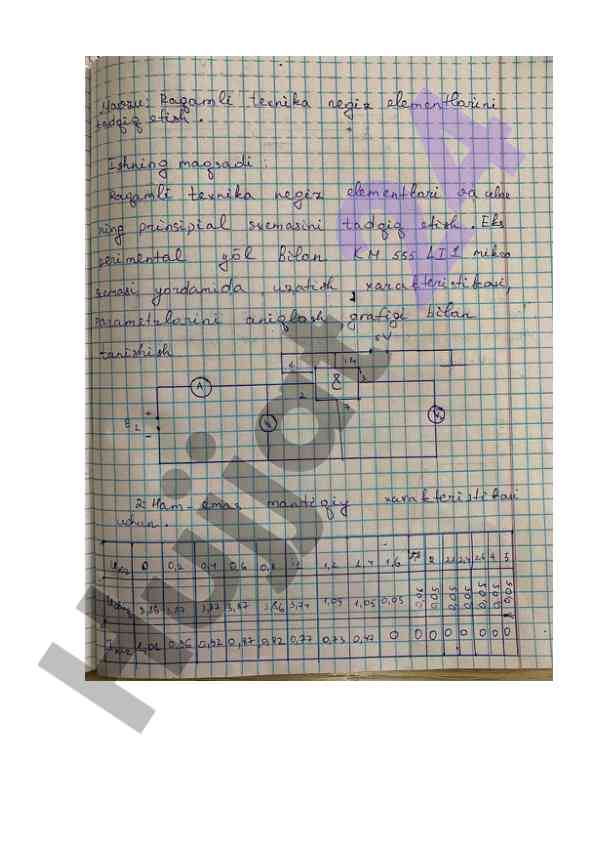 Mavzu: Raqamli texnika negiz elementlarini
tadqiq etish.
Ishning maqsadi:
Raqamli texnika negiz elementlari va ular
ning prinsipial sxemasini tadqiq etish. Eks
perimental yòl bilan KM 555 LI1 mikro
sxemasi yordamida uzatish xarakteristikasi,
parametrlarini aniqlash, grafigi bilan
tanishish
5V
1 14
A &
2 7
E
V V
2. Ham-emas mantiqiy xarakteristikasi
uchun.
0 0,2 0,4 0,6 0,8 1 1,2 1,4 1,6 2
3,87 3,77 3,87 3,86 3,74 1,05 1,05 0,05 500 500 500 500 500 500
0,96 0,92 0,87 0,82 0,77 0,73 0,42 0 0 0 0 0 0 0 0
Hujjat 24